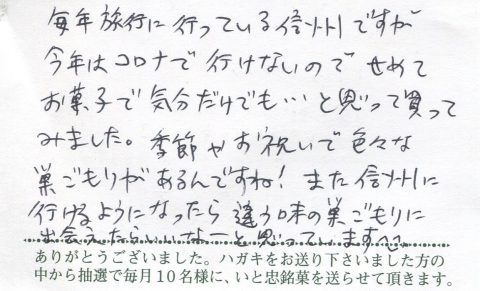 毎年旅行に行っている信州ですが
今年はコロナで行けないのでせめて
お菓子で気分だけでも…と思って買って
みました。季節やお祝いで色々な
巣ごもりがあるんですね!また信州に
行けるようになったら違う味の巣ごもりに
出会えたらいいなーと思っています
ありがとうございました。ハガキをお送り下さいました方の
中から抽選で毎月10名様に、いと忠銘菓を送らせて頂きます。